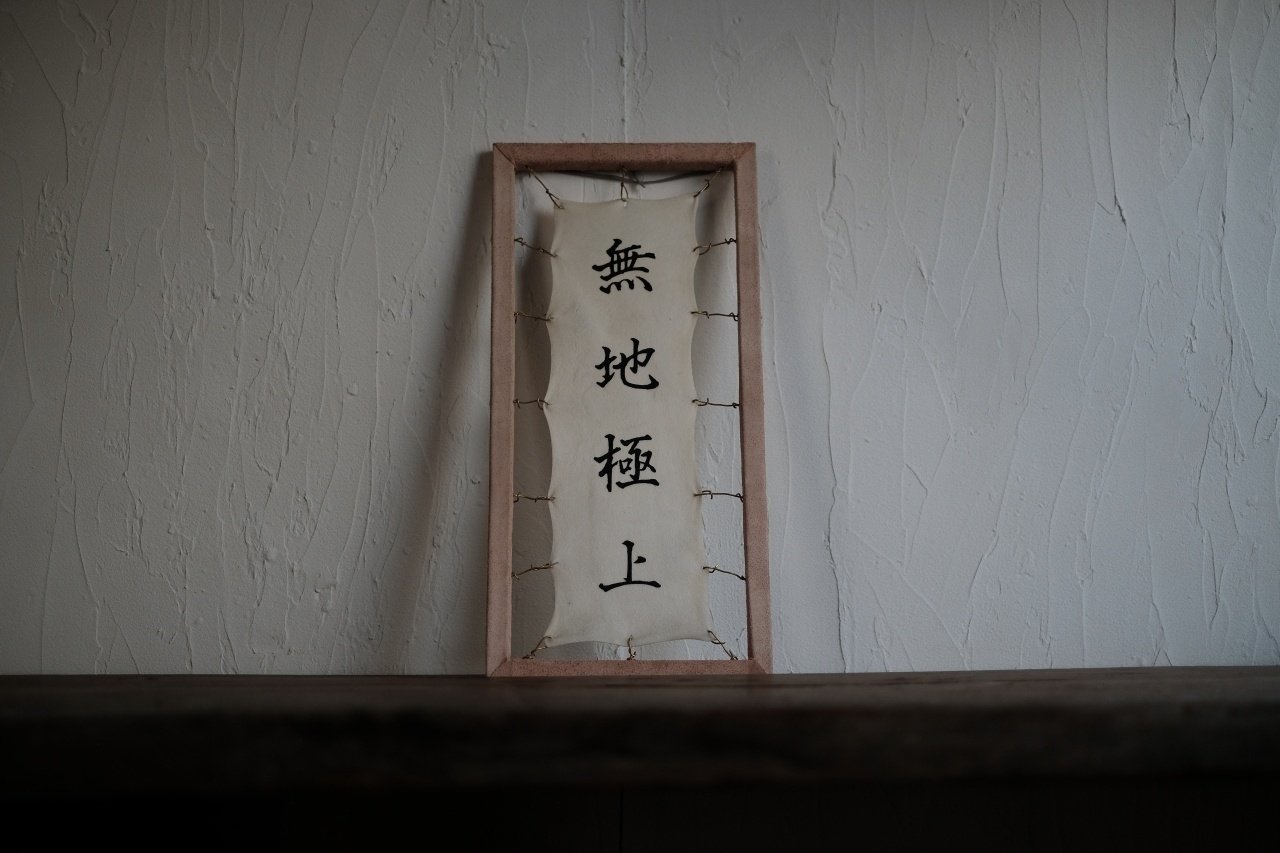 無地極上